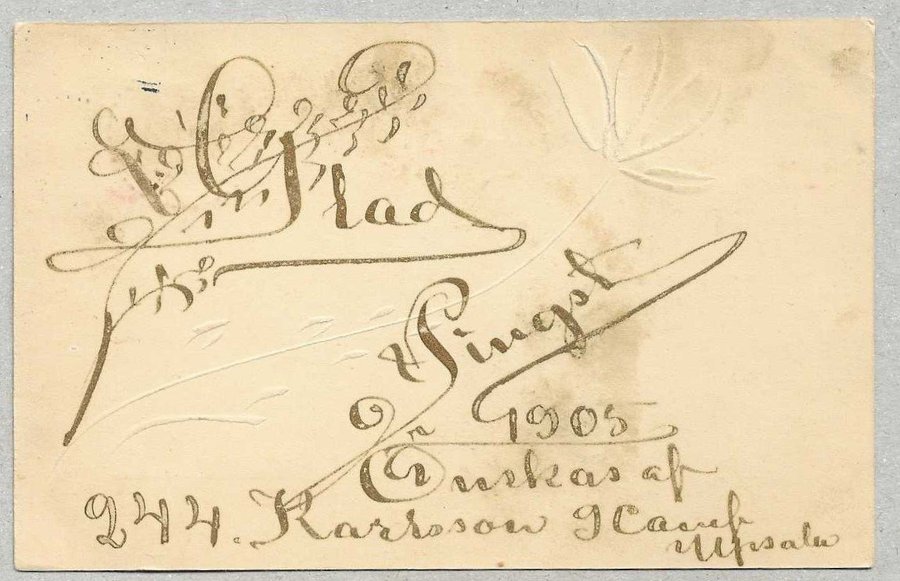 Glad
Pingst
1905
Önskas af
244. Karlsson
Upsala